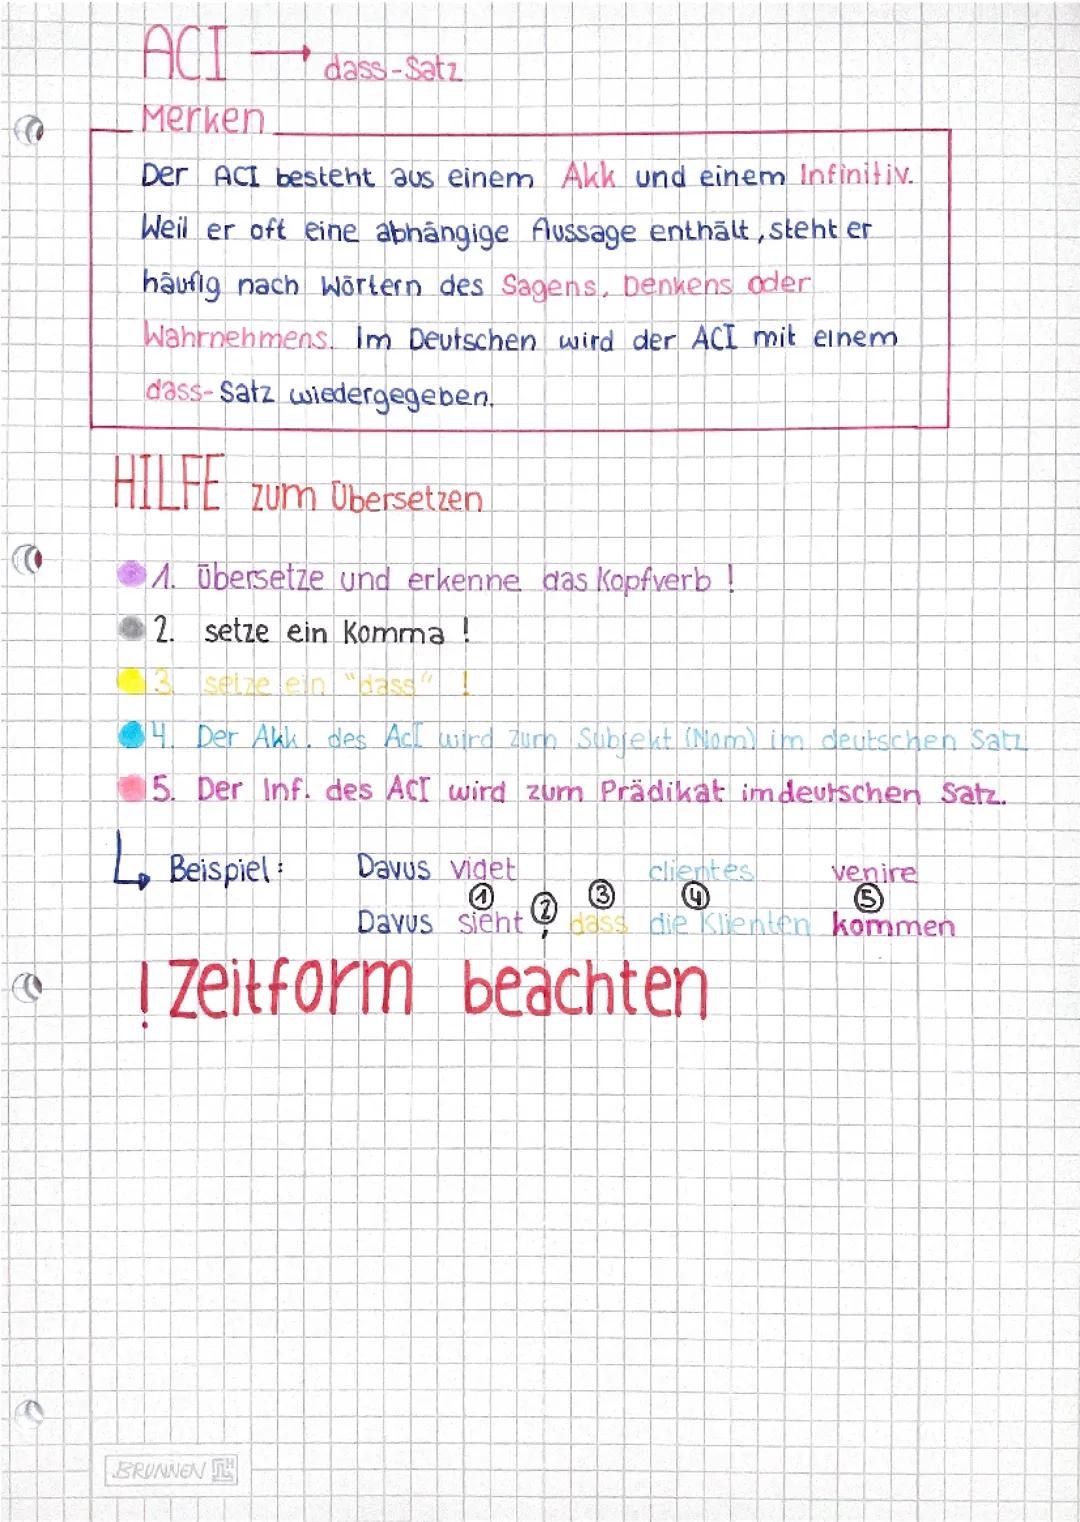 ACI → dass-Satz
Merken
Der ACI besteht aus einem Akk und einem Infinitiv.
Weil er oft eine abhängige Aussage enthält, steht er
häufig nach Wörtern des Sagens, Denkens oder
Wahrnehmens. Im Deutschen wird der ACI mit einem
dass-Satz wiedergegeben.
HILFE zum Übersetzen
1. Übersetze und erkenne das Kopfverb!
2. setze ein Komma!
3. setze ein "dass"!
4. Der Akk. des AcI wird zum Subjekt (Nom) im deutschen Satz
5. Der Inf. des ACI wird zum Prädikat im deutschen Satz.
↳ Beispiel: Davus videt clientes venire
① ② ③ ④ ⑤
Davus sieht, dass die Klienten kommen
! Zeitform beachten
BRUNNEN